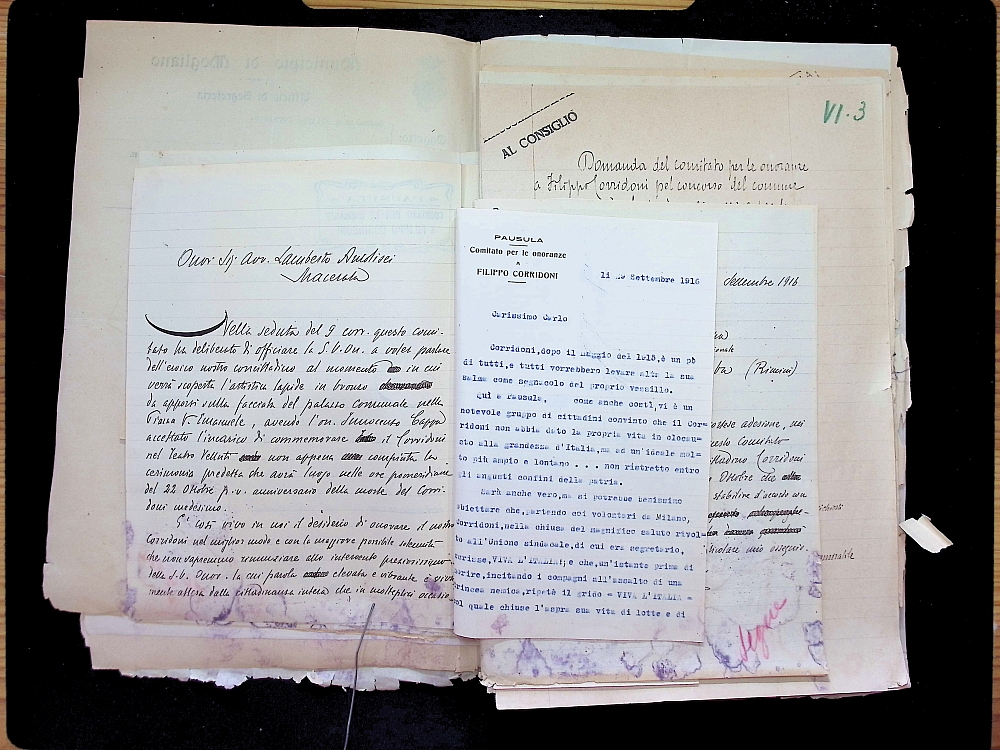 Municipio di Mogliano
Ufficio di Segreteria
VI-3
AL CONSIGLIO
Domanda del comitato per le onoranze
a Filippo Corridoni pel concorso del comune
Onor Sig. Avv. Lamberto
Macerata
Nella seduta del 9 corr. questo comi-
tato ha deliberato di officiare la S.V. On. a voler parlare
dell'eroico nostro concittadino al momento in cui
verrà scoperta l'artistica lapide in bronzo
da apporsi sulla facciata del palazzo Comunale nella
Piazza V. Emanuele, avendo l'on. Innocenzo Cappa
accettato l'incarico di commemorare il Corridoni
nel Teatro Velluti non appena compiuta la
cerimonia predetta che avrà luogo nelle ore pomeridiane
del 22 Ottobre p.v. anniversario della morte del Corri-
doni medesimo.
E' così vivo in noi il desiderio di onorare il nostro
Corridoni nel miglior modo e con la maggiore possibile solennità
che non sapremmo rinunziare allo intervento
della S.V. Onor. la cui parola elevata e vibrante è viva-
mente attesa dalla cittadinanza intera che in molteplici
PAUSULA
Comitato per le onoranze
A
FILIPPO CORRIDONI
li Settembre 1916
Carissimo Carlo
Corridoni,dopo il maggio del 1915,è un pò
di tutti,e tutti vorrebbero levare alta la sua
salma come segnacolo del proprio vessillo.
Quì a Pausula, come anche costì,vi è un
notevole gruppo di cittadini convinto che il Cor=
ridoni non abbia dato la propria vita in olocau=
sto alla grandezza d'Italia,ma ad un'ideale mol=
to più ampio e lontano . . . non ristretto entro
gli angusti confini della patria.
Sarà anche vero,ma si potrebbe benissimo
obiettare che,partendo coi volontari da Milano,
Corridoni,nella chiusa del magnifico saluto rivol=
to all'Unione sindacale,di cui era segretario,
scrisse,VIVA L'ITALIA; e che,un'istante prima di
morire,incitando i compagni all'assalto di una
trincea nemica,ripetè il grido = VIVA L'ITALIA =
col quale chiuse l'aspra sua vita di lotte e di
Settembre 1916
(Rimini)
adesione, mi
questo Comitato
Corridoni
Ottobre che
stabilire d'accordo con
Segue